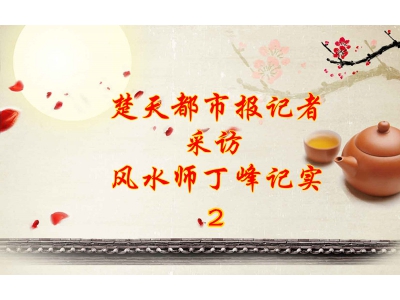 楚天都市报记者
采访
风水师丁峰记实
2